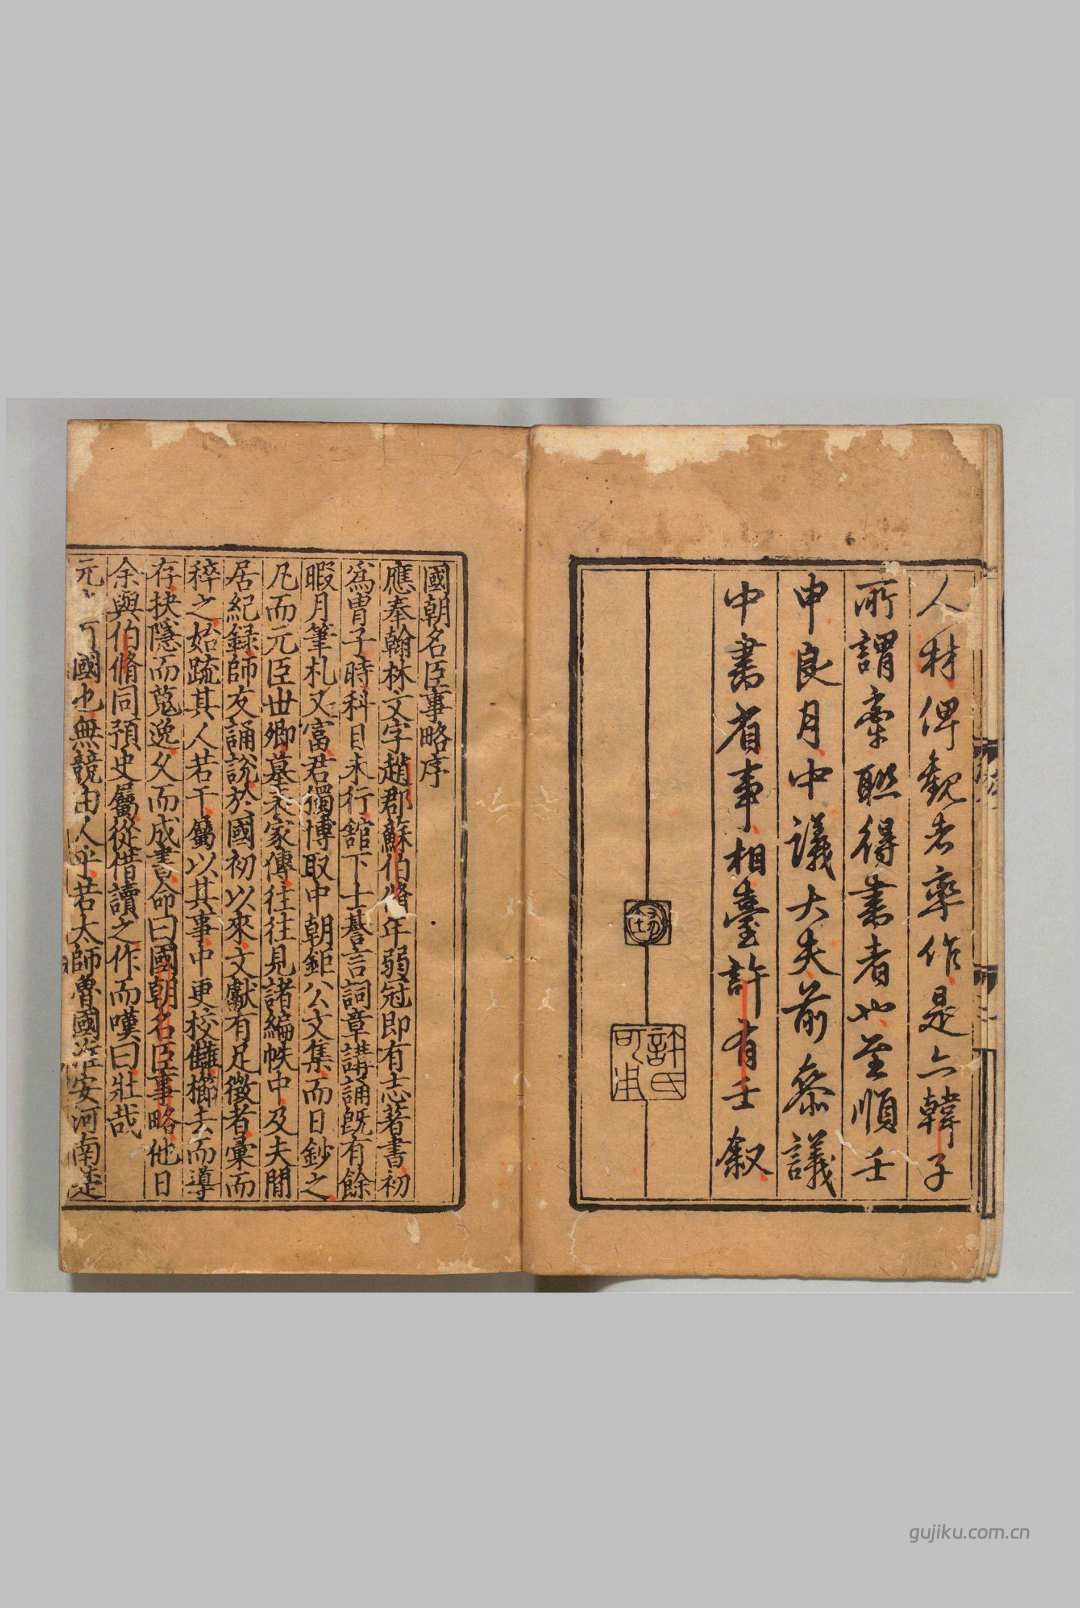 人材俾觀者率作是亦韓子
所謂牽聯得書者也至順壬
申良月中議大夫前參議
中書省事相臺許有壬叙
許氏
可用
國朝名臣事略序
應奉翰林文字趙郡蘇伯脩年弱冠即有志著書初
爲胄子時科目未行舘下士𦤺言詞章講誦旣有餘
暇月筆札又富君獨博取中朝鉅公文集而日鈔之
凡而元臣世卿墓表家傳往往見諸編帙中及夫閒
居紀録師友誦說於國初以來文獻有足徵者彙而
稡之始疏其人若干屬以其事中更校讎櫛去而導
存抉隱而蒐逸久而成書命曰國朝名臣事略他日
余與伯脩同預史屬從借讀之作而嘆曰壯哉
元國也無競由人乎若太師魯國淮安河南楚
gujiku.com.cn